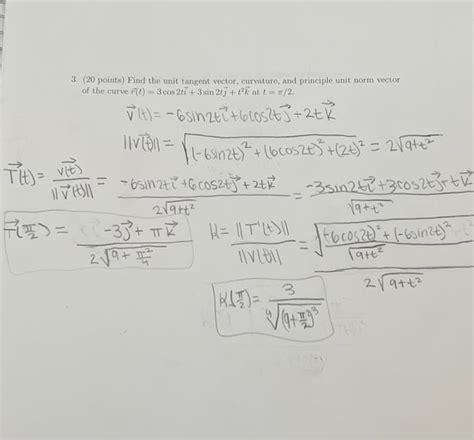 3. (20 points) Find the unit tangent vector, curvature, and principle unit norm vector
of the curve r⃗(t) = 3 cos 2t i⃗ + 3 sin 2t j⃗ + t² k⃗ at t = π/2.
v⃗(t) = -6sin2t i⃗ + 6cos2t j⃗ + 2t k⃗
||v⃗(t)|| = √((-6sin2t)² + (6cos2t)² + (2t)²) = 2√(9+t²)
T⃗(t) = v⃗(t) / ||v⃗(t)|| = (-6sin2t i⃗ + 6cos2t j⃗ + 2t k⃗) / 2√(9+t²) = (-3sin2t i⃗ + 3cos2t j⃗ + t k⃗) / √(9+t²)
T⃗(π/2) = (-3j⃗ + π k⃗) / 2√(9+π²/4)
K = ||T'(t)|| / ||v(t)|| = √((-6cos2t)² + (-6sin2t)² / √(9+t²)) / 2√(9+t²)
K(π/2) =